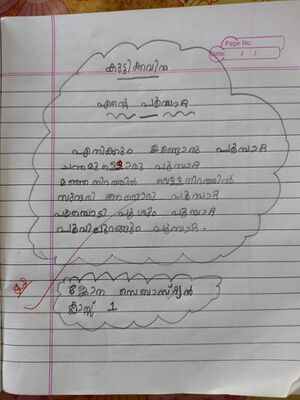 Page No.
Date: / /
കുട്ടിക്കവിത
എന്റെ പൂമ്പാറ്റ
എനിക്കും ഉണ്ടൊരു പൂമ്പാറ്റ
ചന്തമുള്ളൊരു പൂമ്പാറ്റ
മഞ്ഞനിറത്തിൽ വെള്ളനിറത്തിൽ
സുന്ദരി ആണൊരു പൂമ്പാറ്റ
പൂമ്പൊടി പൂശും പൂമ്പാറ്റ
പൂവിലുറങ്ങും പൂമ്പാറ്റ.
ജോന സെബാസ്റ്റ്യൻ
ക്ലാസ്സ് 1